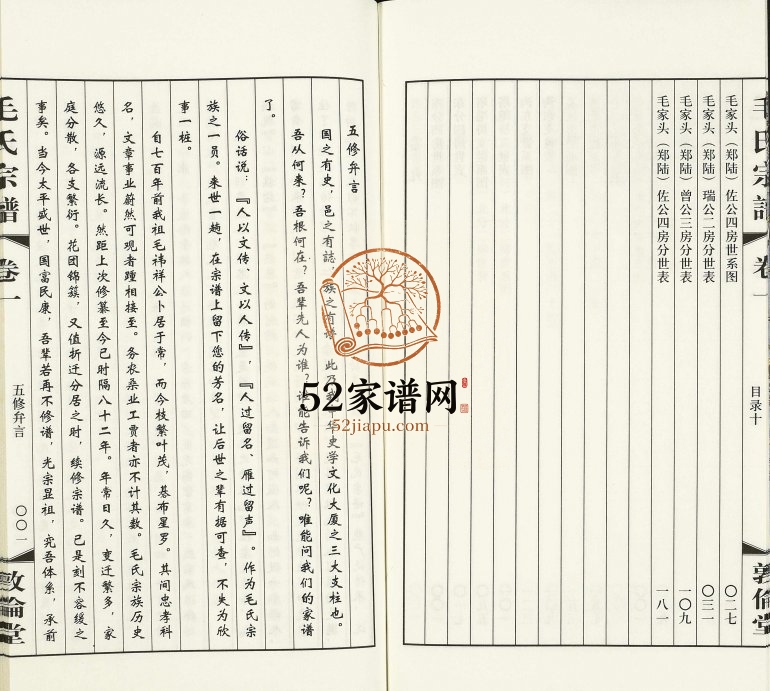 毛氏宗譜
卷一
目录十
敦倫堂
毛家头（郑陆）佐公四房世系图 〇二七
毛家头（郑陆）瑞公二房分世表 〇三一
毛家头（郑陆）曾公三房分世表 一〇九
毛家头（郑陆）佐公四房分世表 一八一
五修弁言
国之有史，邑之有誌，族之有谱，此乃我中华史学文化大厦之三大支柱也。
吾从何来？吾根何在？吾辈先人为谁？谁能告诉我们呢？唯能问我们的家谱
了。
俗话说：『人以文传、文以人传』，『人过留名、雁过留声』。作为毛氏宗
族之一员。来世一趟，在宗谱上留下您的芳名，让后世之辈有据可查，不失为欣
事一桩。
自七百年前我祖毛祎祥公卜居于常，而今枝繁叶茂，棊布星罗。其间忠孝科
名，文章事业蔚然可观者踵相接至。务农桑业工贾者亦不计其数。毛氏宗族历史
悠久，源远流长。然距上次修纂至今已时隔八十二年。年常日久，变迁繁多，家
庭分散，各支繁衍。花团锦簇，又值折迁分居之时，续修宗谱。已是刻不容缓之
事矣。当今太平盛世，国富民康，吾辈若再不修谱，光宗显祖，究吾体系，承前
毛氏宗譜
卷一
五修弁言
〇〇一
敦倫堂
52家谱网
52jiapu.com